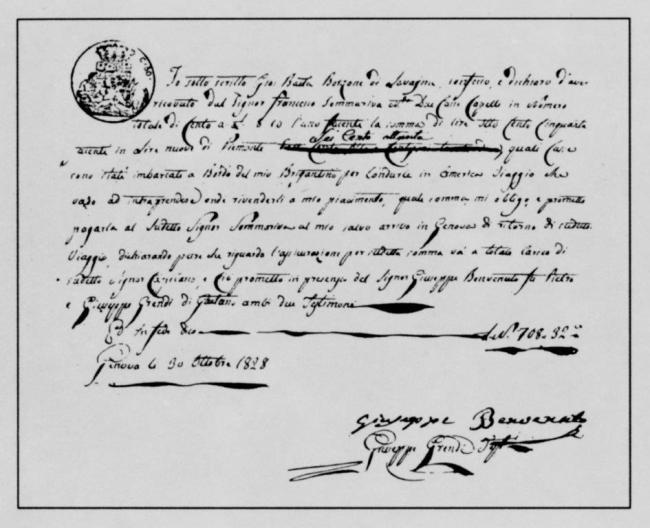 Io sotto scritto Gio Batta Borzone di Savagna, confesso, e dichiaro d'aver
ricevuto dal Signor francesco Sommariva Due Casse Capelli in Numero
totale di Cento a 8 10 l'uno la somma di lire otto Cento Cinquanta
in Lire nuove di Piemonte quali Casse
sono state imbarcate a Bordo del mio Brigantino per Condurle in America Viaggio che
vado ad intraprendere onde rivenderli a mio piacimento, quale somma mi obbligo e prometto
pagarla al Sudetto Signor Sommariva al mio salvo arrivo in Genova di ritorno di sudetto
Viaggio, dichiarando pure che riguardo l'assicurazione per sudetta somma va a totale carico di
sudetto Signor e Ciò prometto in presenza del Signor Giuseppe Benvenuto fu Pietro
e Giuseppe Grendi di Gaetano ambi due Testimoni
In fede dico 708. 32
Genova li 30 Ottobre 1828
Giuseppe Benvenuto
Giuseppe Grendi